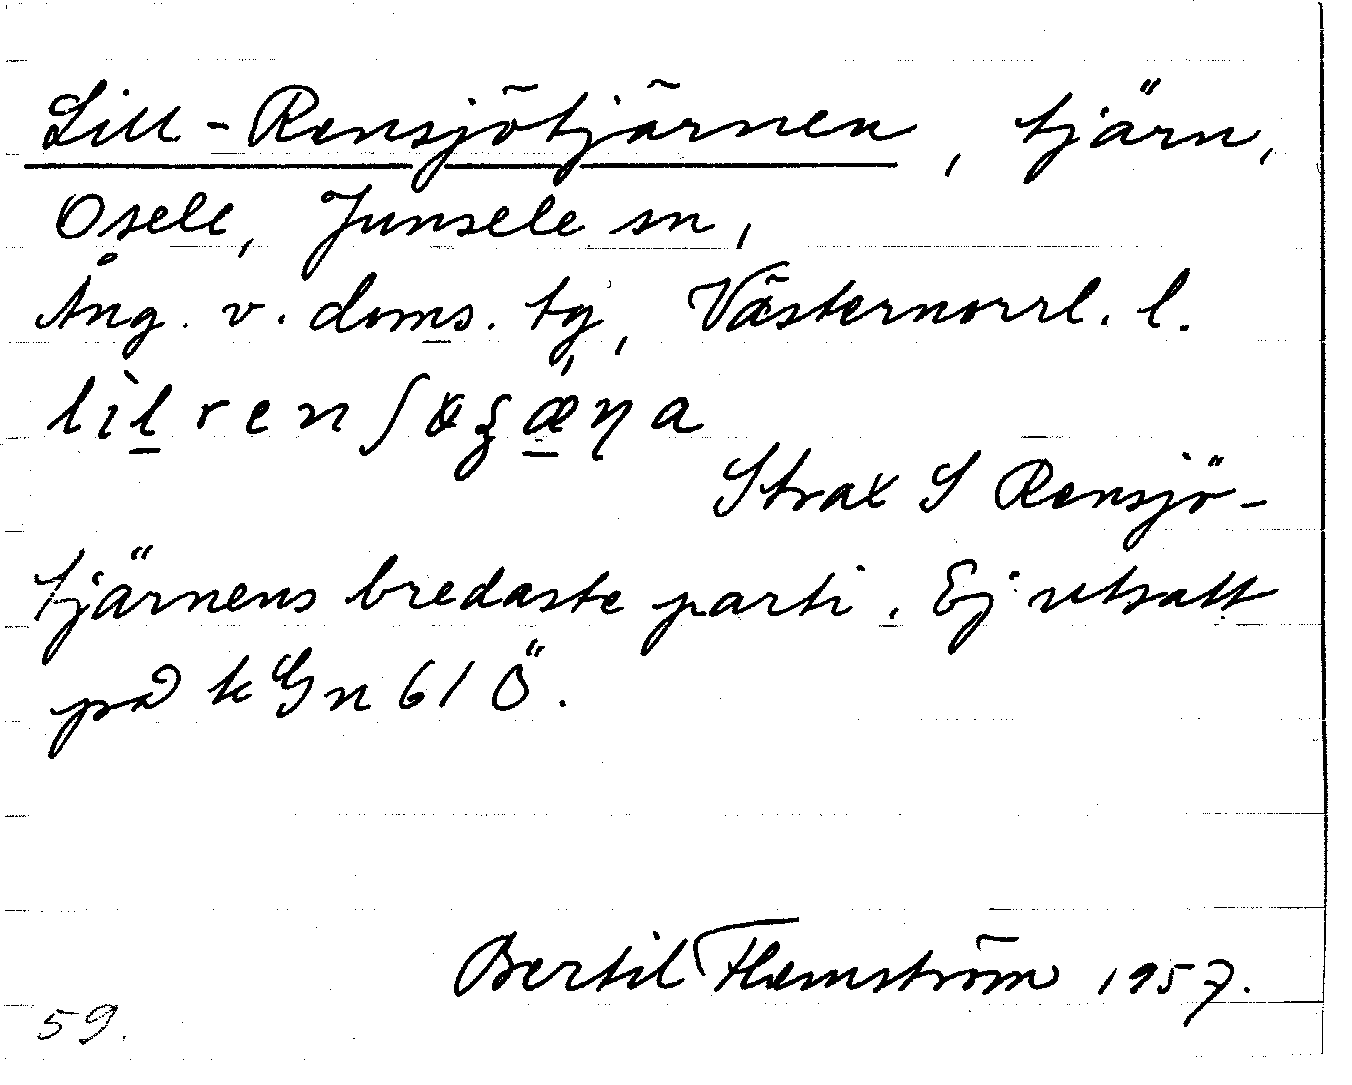 Lill-Rensjötjärnen, tjärn,
Osele, Junsele sn,
Ång. v. doms. tg, Västernorrl. l.
Strax S Rensjö-
tjärnens bredaste parti. Ej utsatt
på kGn 61 Ö.
Bertil Flemström 1957.
59.